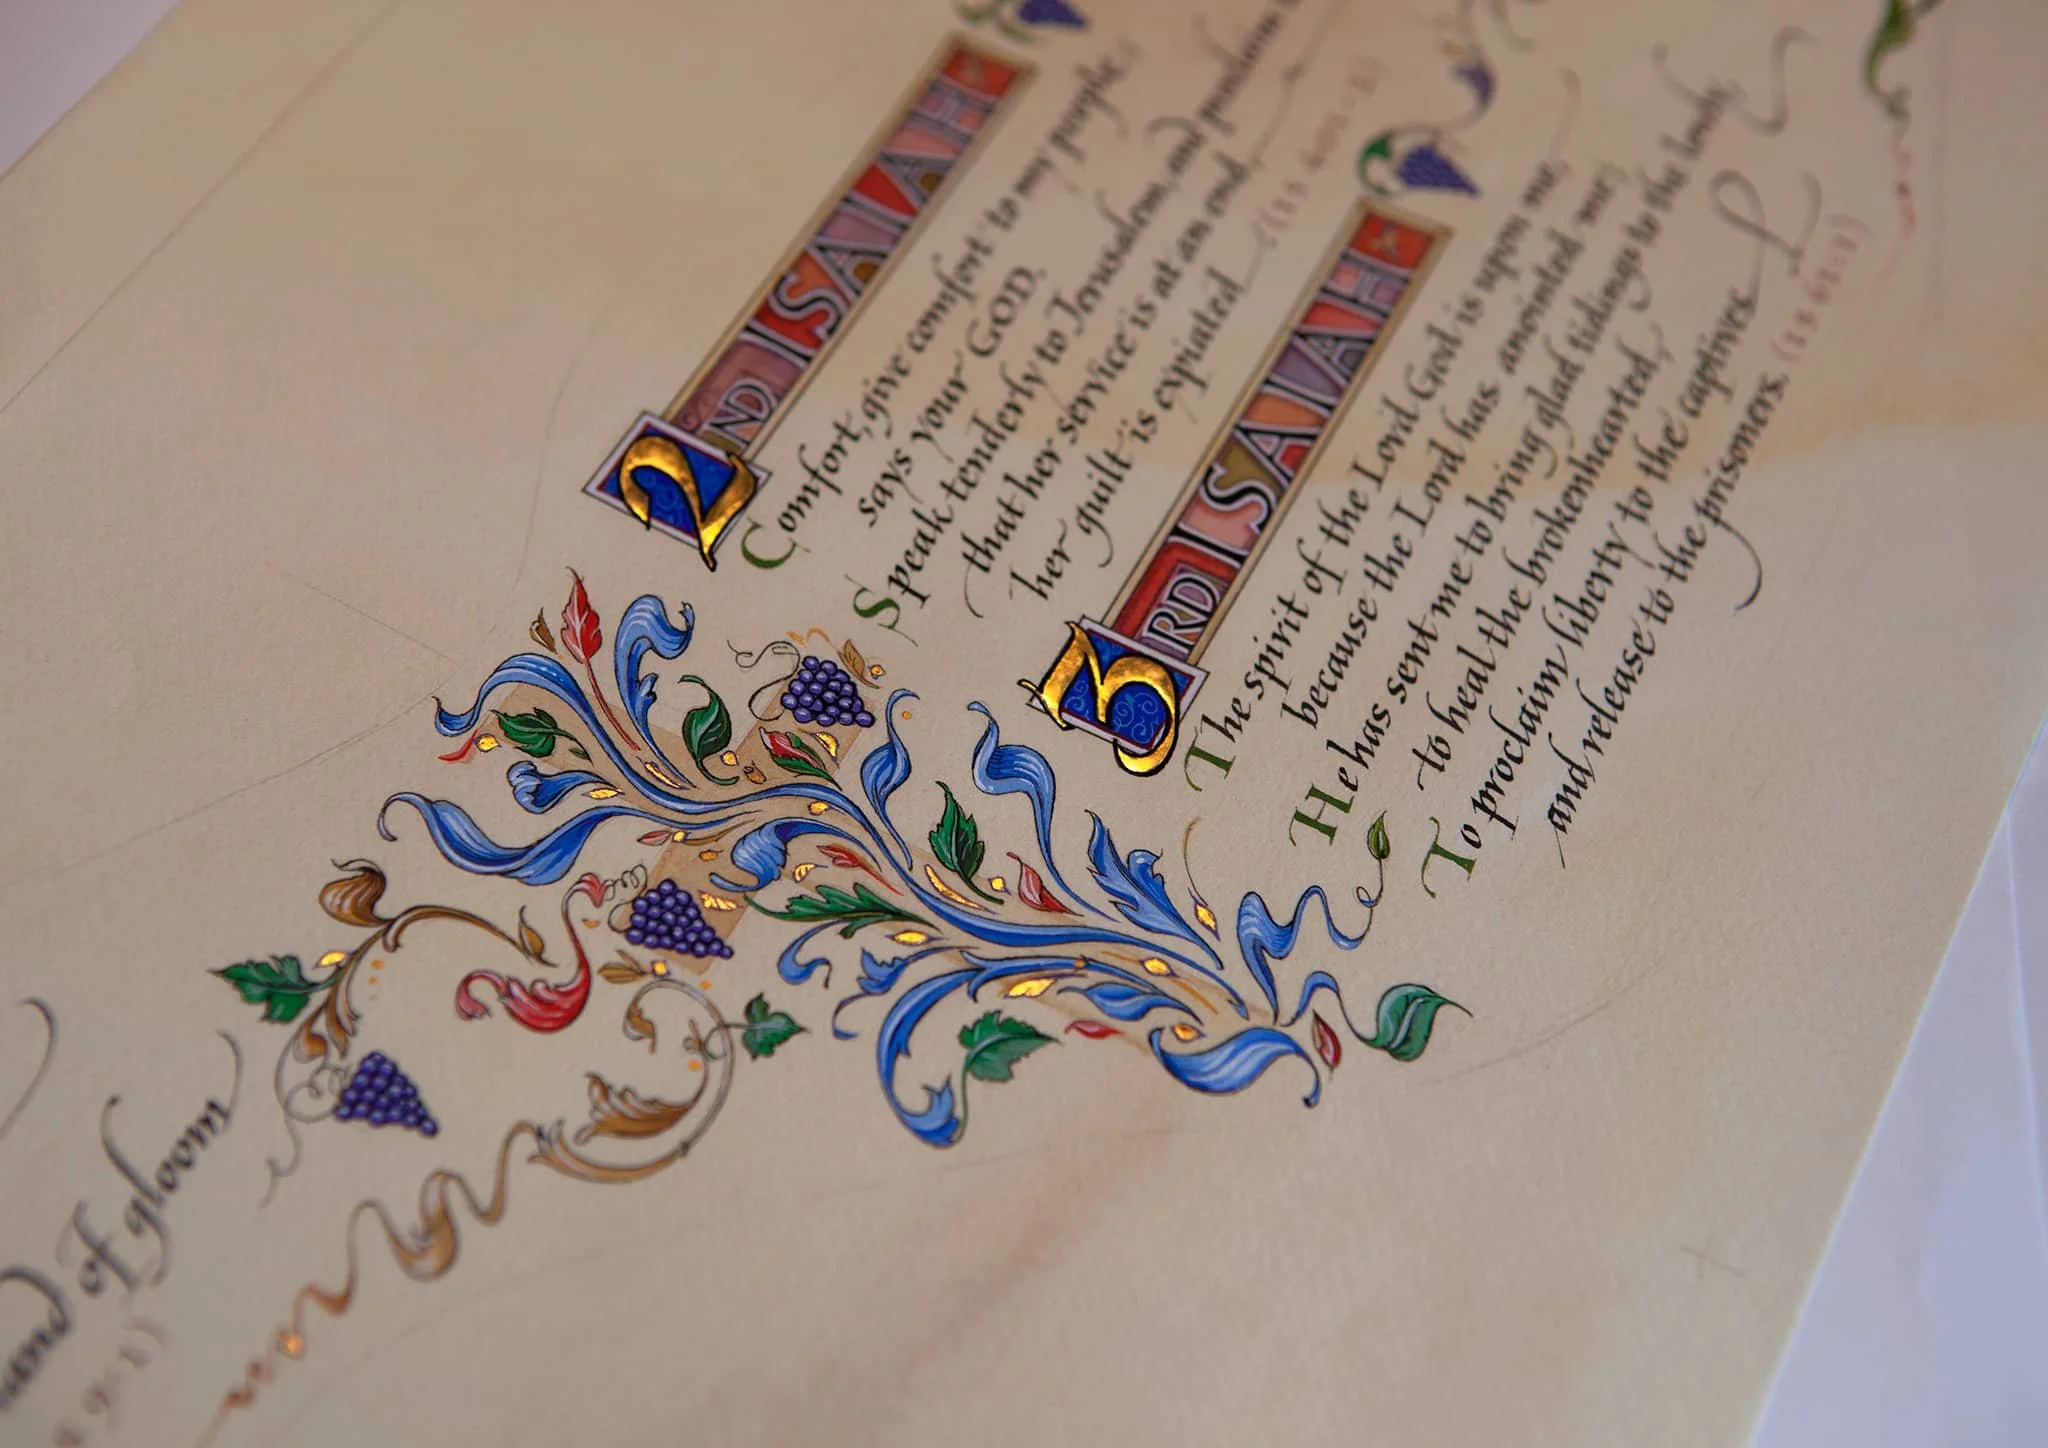 2ND ISAIAH
Comfort, give comfort to my people:
says your GOD.
Speak tenderly to Jerusalem, and proclaim
that her service is at an end,
her guilt is expiated (Is 40:1-2)
3RD ISAIAH
The spirit of the Lord God is upon me,
because the Lord has anointed me;
He has sent me to bring glad tidings to the lowly,
to heal the brokenhearted,
To proclaim liberty to the captives
and release to the prisoners. (Is 61:1)
land of gloom